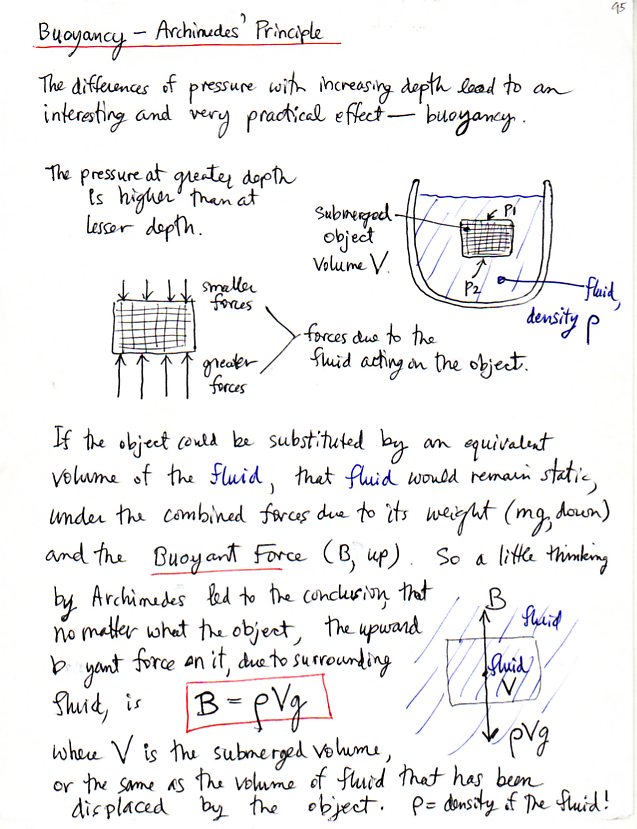 95
Buoyancy – Archimedes' Principle
The differences of pressure with increasing depth lead to an
interesting and very practical effect — buoyancy.
The pressure at greater depth
is higher than at
lesser depth.
submerged
object
volume V.
P1
P2
fluid,
density ρ
smaller
forces
greater
forces
forces due to the
fluid acting on the object.
If the object could be substituted by an equivalent
volume of the fluid, that fluid would remain static,
under the combined forces due to its weight (mg, down)
and the Buoyant Force (B, up). So a little thinking
by Archimedes led to the conclusion, that
no matter what the object, the upward
b yant force on it, due to surrounding
fluid, is B = ρVg
B
fluid
fluid
V
ρVg
where V is the submerged volume,
or the same as the volume of fluid that has been
displaced by the object. ρ = density of the fluid!